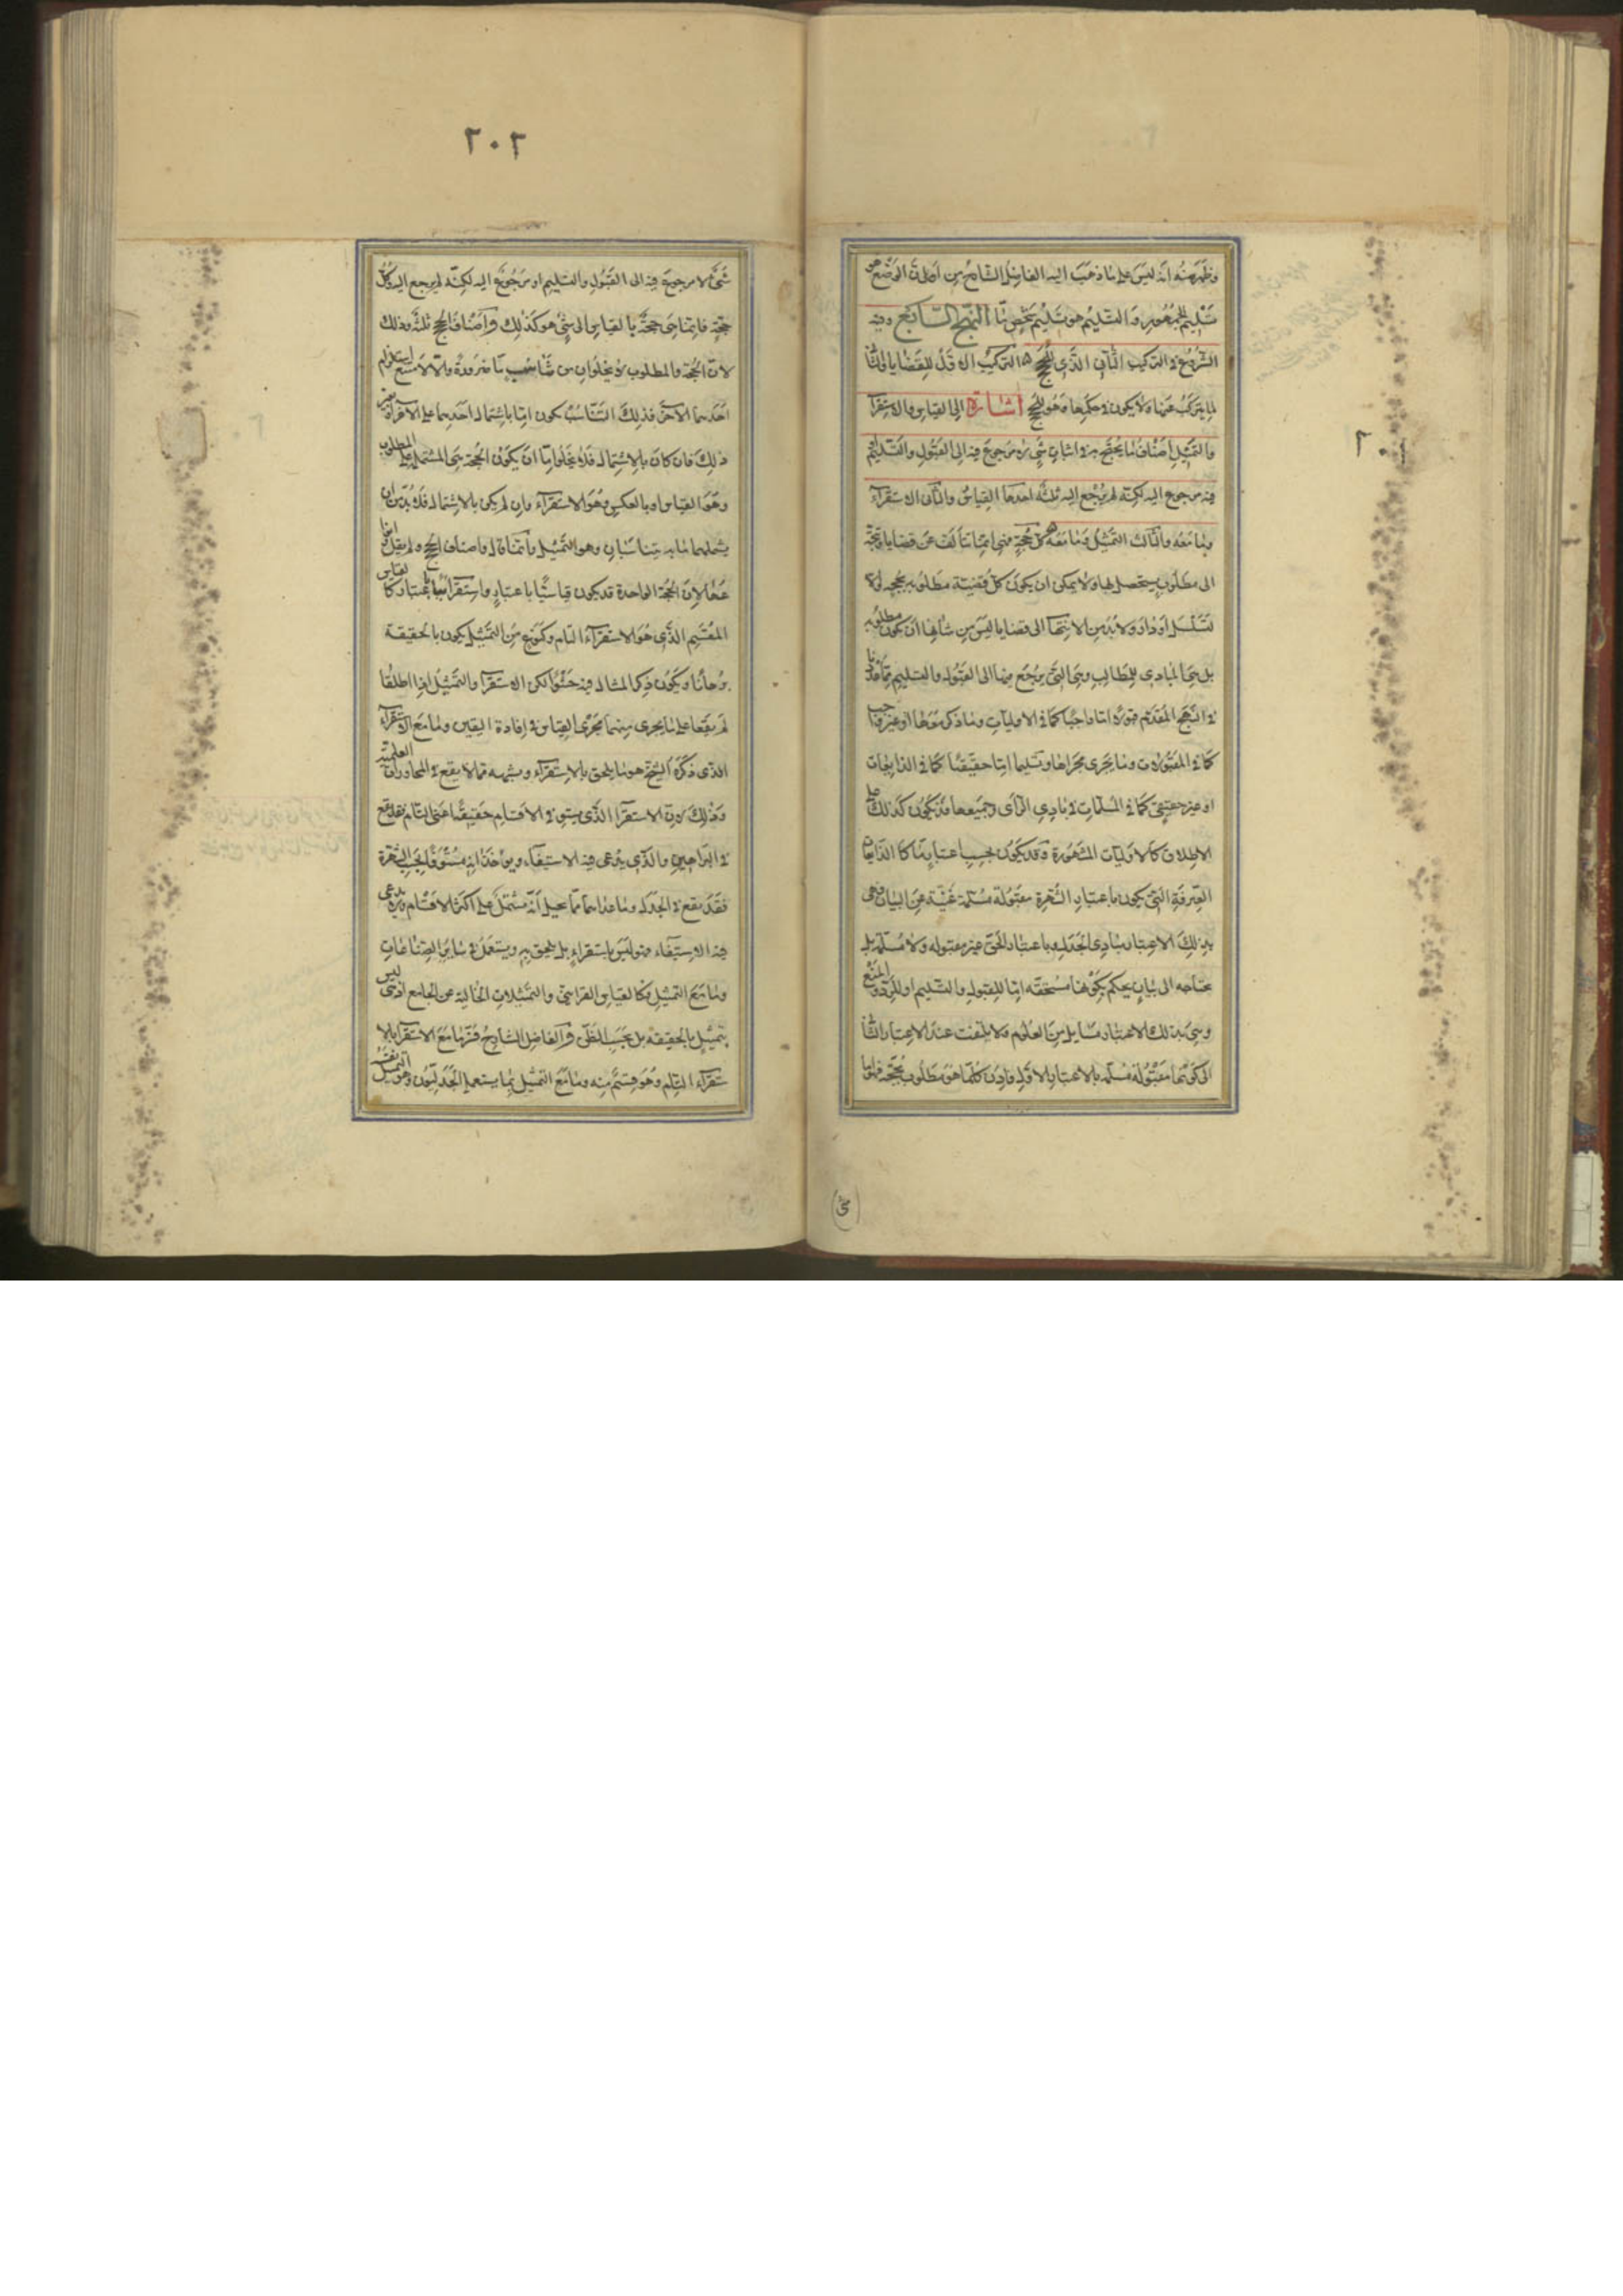 وظهر منه انه ليس على ما ذهب اليه الفاضل الشارح من اطلاق الوضع هو
تسليم الجمهور والتسليم هو تسليم شخص ما النهج السابع وفيه
الشروع في التركيب الثاني الذي للحجج ه التركيب الاول للقضايا والثا
لما يتركب عنها ولا يكون في حكمها وهو للحجج اشارة الى القياس والاستقرآ
والتمثيل اصناف ما يحتج به في اثبات شئ لا مرجوع فيه الى القبول والتسليم او
فيه مرجوع اليه لكنه لم يرجع اليه ثلثة احدها القياس والثانى الاستقرآء
وما معه والثالث التمثيل وما معه ه كل حجة فهى انما تتألف عن قضايا وتتجه
الى مطلوب يستحصل بها ولا يمكن ان يكون كل قضية مطلوبه بحجه والا
لتسلسل او دار ولا بد من الانتهآ الى قضايا ليس من شانها ان تكون مطلوبه
بل هى المبادى للمطالب وهى التى يرجع فيها الى القبول والتسليم مما عددنا
في النهج المتقدم قبولا اما واجبا كما في الاوليات وما ذكر معها او غير واجب
كما في المقبولات وما يجرى مجراها وتسليما اما حقيقيا كما في الذايعات
او غير حقيقى كما في المسلمات في بادى الرأى وجميعها قد يكون كذلك على
الاطلاق كالاوليات المشهورة وقد يكون بحسب اعتبار ما كالذايعات
الصرفة التى يكون باعتبار الشهرة مقبولة مسلمة غنية عن البيان فهى
بذلك الاعتبار مبادى الجدل وباعتبار الحق غير مقبوله ولا مسلمه بل
محتاجه الى بيان يحكم بكونها مستحقه اما للقبول والتسليم او للرد والمنع
وهى بذلك الاعتبار مسايل من العلوم ولا يلتفت عند الاعتبار الثا
الى كونها مقبولة مسلمه بالاعتبار الاول فاذن كلما هو مطلوب بحجة فاما
٢٠٢
شئ لا مرجوع فيه الى القبول والتسليم او مرجوع اليه لكنه لم يرجع اليه وكل
حجة فانما هى حجة بالقياس الى شئ هو كذلك واصناف الحجج ثلثة وذلك
لان الحجة والمطلوب لا يخلوان من تناسب ما ضرورة والا لامتنع استلزام
احدهما الآخر فذلك التناسب يكون اما باشتمال احدهما على الآخر او بغير
ذلك فان كان بالاشتمال فلا يخلو اما ان يكون الحجة هى المشتمل على المطلوب
وهو القياس او بالعكس وهو الاستقرآء وان لم يكن بالاشتمال فلا بد من ان
يشملهما ما به يتناسبان وهو التمثيل وانما قال واصناف الحجج ولم يقل انوا
عها لان الحجة الواحدة قد يكون قياسيا باعتبار واستقرائيا باعتبار كالقياس
المقسم الذى هو الاستقرآء التام وكنوع من التمثيل يكون بالحقيقة
برهانا ويكون ذكر المثال فيه حشوا لكن الاستقرآ والتمثيل اذا اطلقا
لم يقعا على ما يجرى منهما مجرى القياس في افادة اليقين وما مع الاستقرآء
الذى ذكره الشيخ هو ما يلحق بالاستقرآء ويشبهه مما لا يقع في المحاورات العلمية
وذلك لان الاستقرآ الذى يستوفى الاقسام حقيقيا اعنى التام فقد يقع
في البراهين والذى يدعى فيه الاستيفآء ويؤخذ انه مستوفى بحسب الشهرة
فقد يقع في الجدل وما عداهما مما يخيل انه مشتمل على اكثر الاقسام ولا يدعى
فيه الاستيفآء فهو ليس باستقراء بل يلحق به ويستعمل في ساير الصناعات
وما مع التمثيل فكالقياس الفراسى والتمثيلات الخالية عن الجامع اذ هى ليس
بتمثيل بالحقيقة بل بحسب الظن والفاضل الشارح فسر ما مع الاستقرآ بالا
ستقرآء التام وهو قسم منه وما مع التمثيل بما يستعمله الجدليون وهو التمثيل نفسه